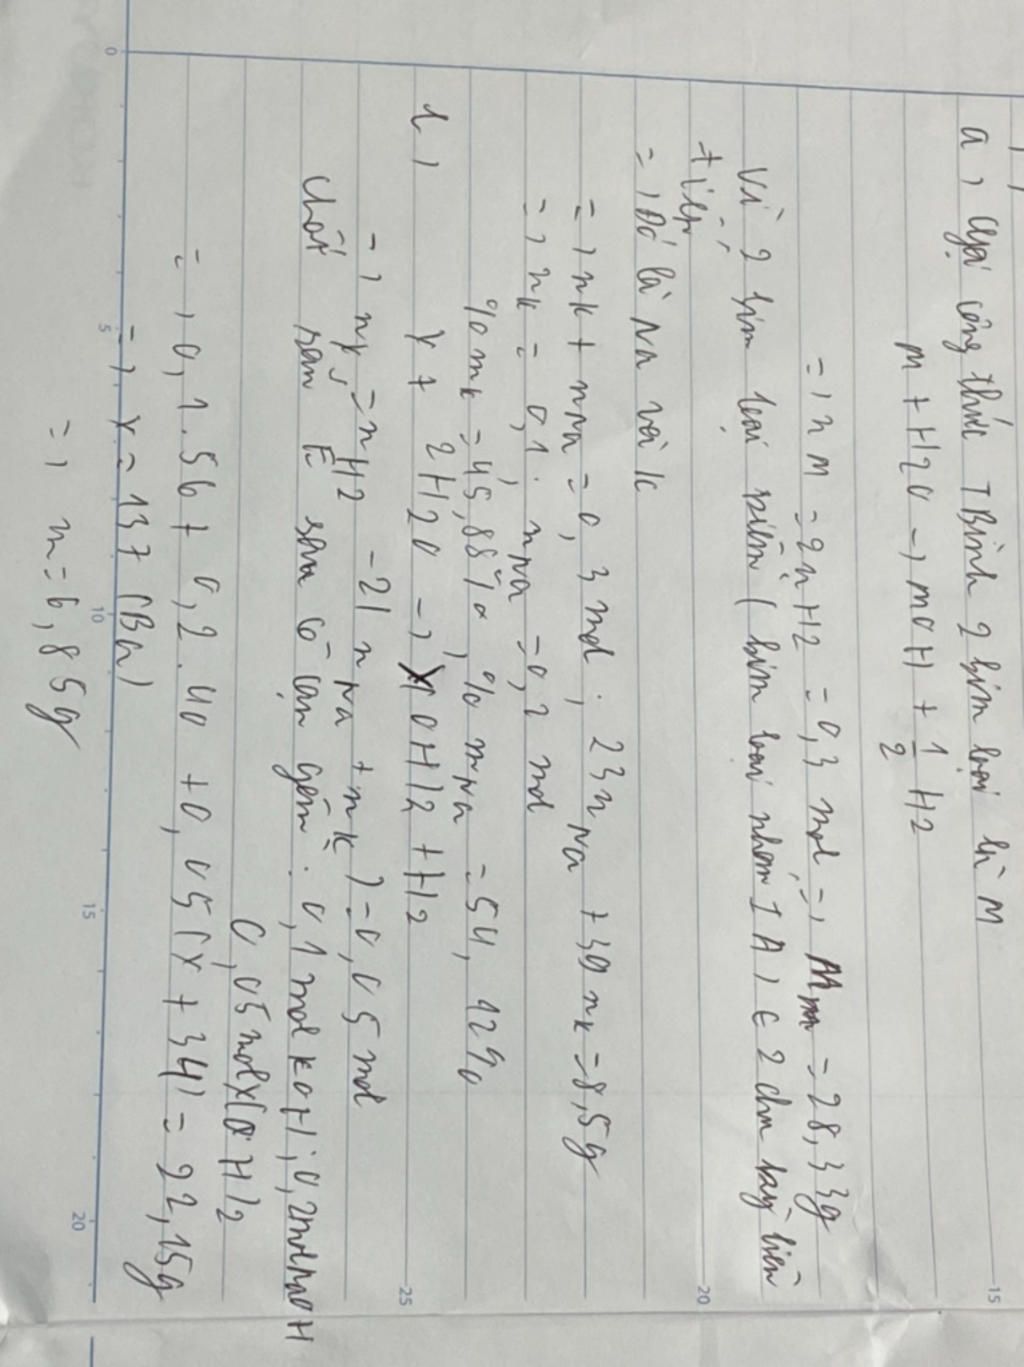 a, Gọi công thức TBình 2 kim loại là M
M + H2O -> MOH + 1/2 H2
=> nM = 2nH2 = 0,3 mol => MM = 28,33g
Vì 2 kim loại kiềm (kim loại nhóm IA) ∈ 2 chu kỳ liên
tiếp
=> Đó là Na và K
=> nK + nNa = 0,3 mol; 23nNa + 39nK = 8,5g
=> nK = 0,1; nNa = 0,2 mol
%mK = 45,88%, %mNa = 54,12%
b, X + 2H2O -> X(OH)2 + H2
=> nX = nH2 - 2(nNa + nK) = 0,05 mol
Chất rắn E sau cô cạn gồm: 0,1 mol KOH; 0,2 mol NaOH
0,05 mol X(OH)2
=> 0,1.56 + 0,2.40 + 0,05(X + 34) = 22,15g
=> X = 137 (Ba)
=> m = 6,85g
0 5 10 15 20
15 20 25